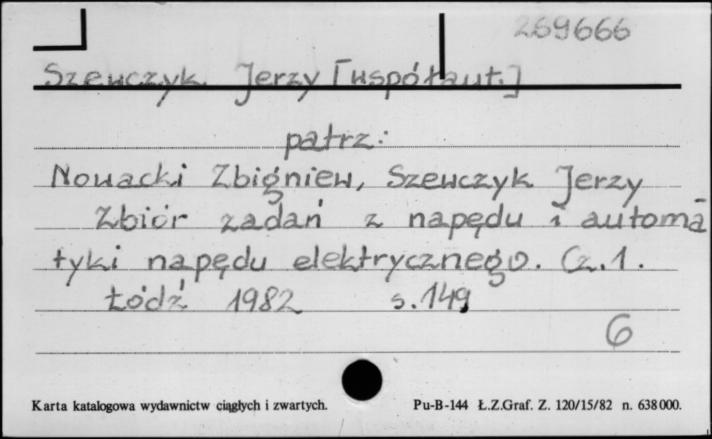 259666
Szewczyk Jerzy [współaut.]
patrz:
Nowacki Zbigniew, Szewczyk Jerzy
Zbiór zadań z napędu i automa-
tyki napędu elektrycznego. Cz.1.
Łódź 1982 s.149
6
Karta katalogowa wydawnictw ciągłych i zwartych. Pu-B-144 Ł.Z.Graf. Z. 120/15/82 n. 638000.